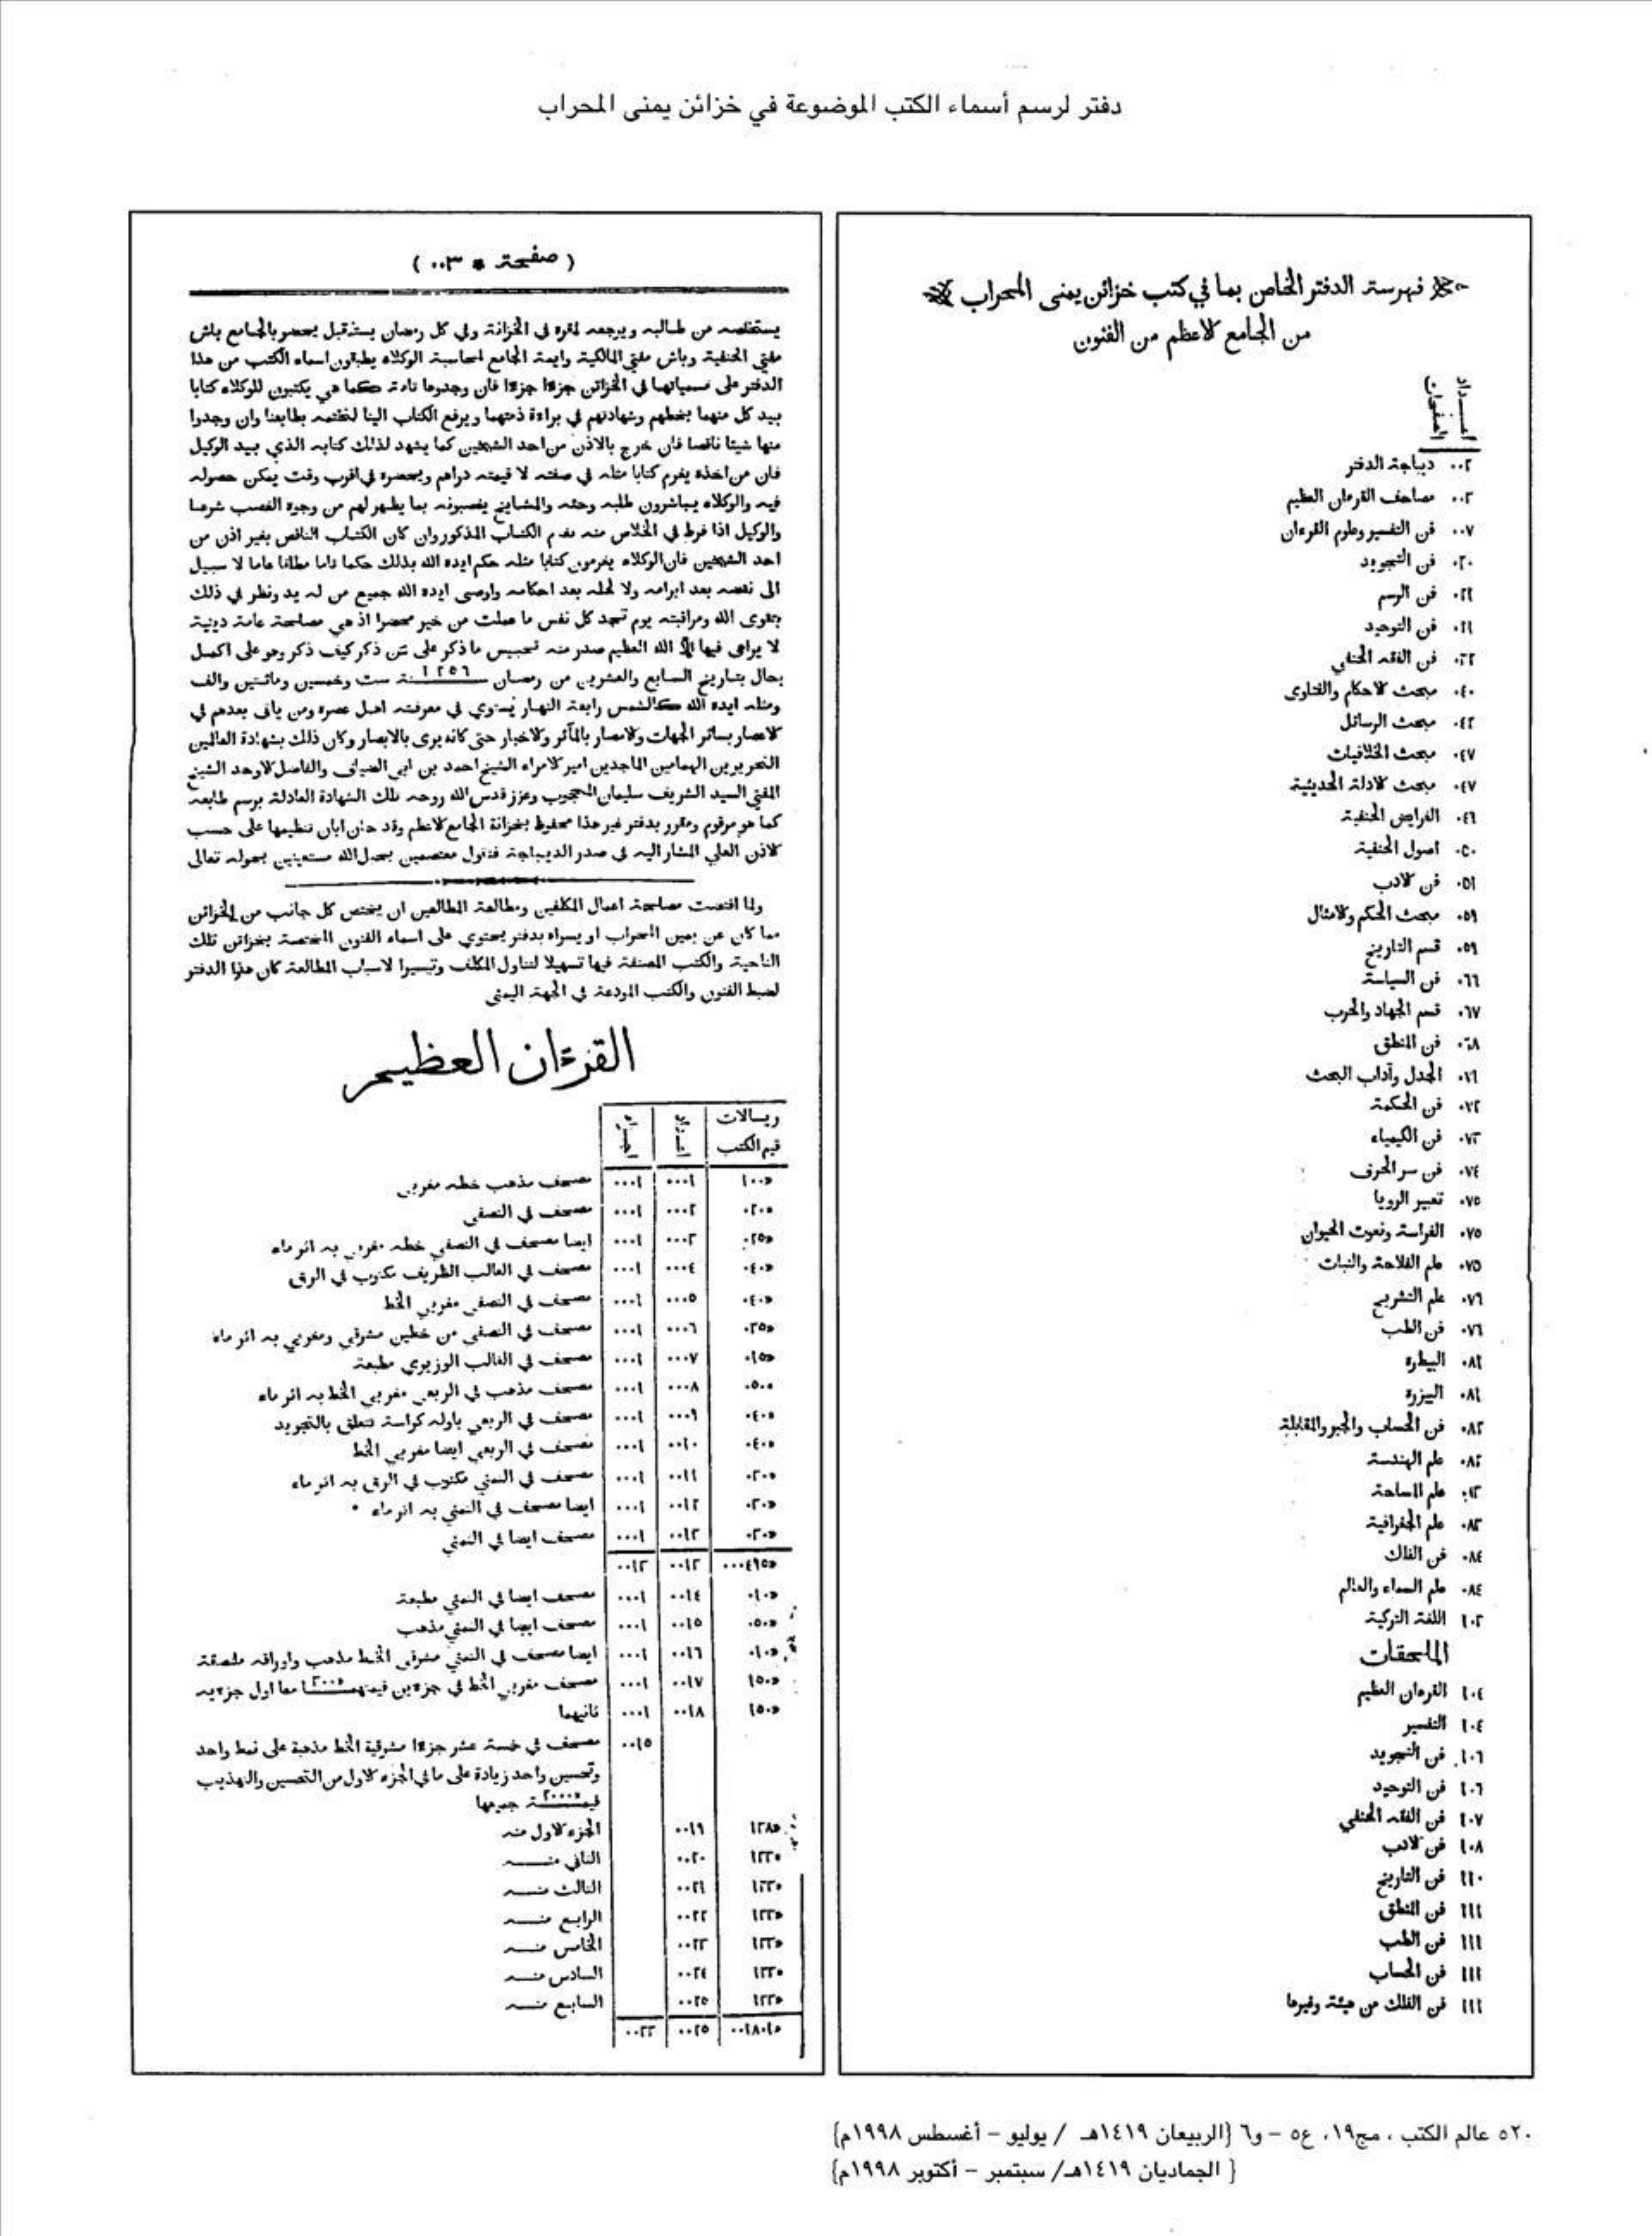 دفتر لرسم أسماء الكتب الموضوعة في خزائن يمنى المحراب
فهرسة الدفتر الخاص بما في كتب خزائن يمنى المحراب
من الجامع الاعظم من الفنون
اعداد الصفحات
٠٠٢ ديباجة الدفتر
٠٠٣ مصاحف القرءان العظيم
٠٠٧ فن التفسير وعلوم القرءان
٠٢٠ فن التجويد
٠٢١ فن الرسم
٠٢١ فن التوحيد
٠٢٢ فن الفقه الحنفي
٠٤٠ مبحث الاحكام والفتاوى
٠٤٢ مبحث الرسائل
٠٤٧ مبحث الخلافيات
٠٤٧ مبحث الادلة الحديثية
٠٤٩ الفرايض الحنفية
٠٥٠ اصول الحنفية
٠٥١ فن الادب
٠٥٩ مبحث الحكم والامثال
٠٥٩ قسم التاريخ
٠٦٦ فن السياسة
٠٦٧ قسم الجهاد والحرب
٠٦٨ فن المنطق
٠٧١ الجدل وآداب البحث
٠٧٢ فن الحكمة
٠٧٣ فن الكيمياء
٠٧٤ فن سر الحرف
٠٧٥ تعبير الرويا
٠٧٥ الفراسة ونعوت الحيوان
٠٧٥ علم الفلاحة والنبات
٠٧٦ علم التشريح
٠٧٦ فن الطب
٠٨١ البيطرة
٠٨١ البيزرة
٠٨٢ فن الحساب والجبر والمقابلة
٠٨٢ علم الهندسة
علم المساحة
٠٨٣ علم الجغرافية
٠٨٤ فن الفلك
٠٨٤ علم السماء والعالم
١٠٢ اللغة التركية
الملحقات
١٠٤ القرءان العظيم
١٠٤ التفسير
١٠٦ فن التجويد
١٠٦ فن التوحيد
١٠٧ فن الفقه الحنفي
١٠٨ فن الادب
١١٠ فن التاريخ
١١١ فن المنطق
١١١ فن الطب
١١١ فن الحساب
١١١ فن الفلك من هيئة وغيرها
( صفحة * ٠٠٣ )
يستخلصه من طالبه ويرجعه لمقره في الخزانة وفي كل رمضان يستقبل يحضر بالجامع باش
مفتي الحنفية وباش مفتي المالكية وايمة الجامع لمحاسبة الوكلاء يطبقون اسماء الكتب من هذا
الدفتر على مسمياتها في الخزائن جزءا جزءا فان وجدوها تامة كما هي يكتبون للوكلاء كتابا
بيد كل منهما بخطهم وشهادتهم في براءة ذمتهما ويرفع الكتاب الينا لنختمه بطابعنا وان وجدوا
منها شيئا ناقصا فان خرج بالاذن من احد الشيخين كما يشهد لذلك كتابه الذي بيد الوكيل
فان من اخذه يغرم كتابا مثله في صفته لا قيمته دراهم ويحضره في اقرب وقت يمكن حصوله
فيه والوكلاء يباشرون طلبه وحثه والمشايخ يغصبونه بما يظهر لهم من وجوه الغصب شرعا
والوكيل اذا فرط في الخلاص منه غرم الكتاب المذكور وان كان الكتاب الناقص بغير اذن من
احد الشيخين فان الوكلاء يغرمون كتابا مثله حكم ايده الله بذلك حكما تاما مطلقا عاما لا سبيل
الى نقضه بعد ابرامه ولا لحله بعد احكامه واوصى ايده الله جميع من له يد ونظر في ذلك
بتقوى الله ومراقبته يوم تجد كل نفس ما عملت من خير محضرا اذ هي مصلحة عامة دينية
لا يراعى فيها الا الله العظيم صدر منه تحبيس ما ذكر على من ذكر كيف ذكر وهو على اكمل
بحال بتاريخ السابع والعشرين من رمضان سنة ١٢٥٦ ست وخمسين ومائتين والف
ومثله ايده الله كالشمس رابعة النهار يستوي في معرفته اهل عصره ومن ياتي بعدهم في
الاعصار بسائر الجهات والامصار بالمآثر والاخبار حتى كانه يرى بالابصار وكان ذلك بشهادة العالمين
النحريرين الهمامين الماجدين امير الامراء الشيخ احمد بن ابي الضياف والفاضل الاوحد الشيخ
المفتي السيد الشريف سليمان المحجوب وعزز قدس الله روحه تلك الشهادة العادلة برسم طابعه
كما هو مرقوم ومقرر بدفتر غير هذا محفوظ بخزانة الجامع الاعظم وقد حان ابان تنظيمها على حسب
الاذن العلي المشار اليه في صدر الديباجة فنقول معتصمين بحبل الله مستعينين بحوله تعالى
ولما اقتضت مصلحة اعمال المكلفين ومطالعة المطالعين ان يختص كل جانب من الخزائن
مما كان عن يمين المحراب او يسراه بدفتر يحتوي على اسماء الفنون المختصة بخزائن تلك
الناحية والكتب المصنفة فيها تسهيلا لتناول المكلف وتيسيرا لاسباب المطالعة كان هذا الدفتر
لضبط الفنون والكتب المودعة في الجهة اليمنى
القرءان العظيم
ريالات قيم الكتب | اعداد | اجزاء
١٠٠ | ٠٠٠١ | ٠٠٠١ مصحف مذهب خطه مغربي
٠٢٠ | ٠٠٠٢ | ٠٠٠١ مصحف في النصفي
٠٢٥ | ٠٠٠٣ | ٠٠٠١ ايضا مصحف في النصفي خطه مغربي به اثر ماء
٠٤٠ | ٠٠٠٤ | ٠٠٠١ مصحف في القالب الظريف مكتوب في الرق
٠٤٠ | ٠٠٠٥ | ٠٠٠١ مصحف في النصفي مغربي الخط
٠٣٥ | ٠٠٠٦ | ٠٠٠١ مصحف في النصفي من خطين مشرقي ومغربي به اثر ماء
٠١٥ | ٠٠٠٧ | ٠٠٠١ مصحف في القالب الوزيري مطبعة
٠٥٠ | ٠٠٠٨ | ٠٠٠١ مصحف مذهب في الربعي مغربي الخط به اثر ماء
٠٤٠ | ٠٠٠٩ | ٠٠٠١ مصحف في الربعي باوله كراسة تتعلق بالتجويد
٠٤٠ | ٠٠١٠ | ٠٠٠١ مصحف في الربعي ايضا مغربي الخط
٠٣٠ | ٠٠١١ | ٠٠٠١ مصحف في الثمني مكتوب في الرق به اثر ماء
٠٣٠ | ٠٠١٢ | ٠٠٠١ ايضا مصحف في الثمني به اثر ماء
٠٣٠ | ٠٠١٣ | ٠٠٠١ مصحف ايضا في الثمني
٠٠٠٤٩٥ | ٠٠١٣ | ٠٠١٣
٠١٠ | ٠٠١٤ | ٠٠٠١ مصحف ايضا في الثمني مطبعة
٠٥٠ | ٠٠١٥ | ٠٠٠١ مصحف ايضا في الثمني مذهب
٠١٠ | ٠٠١٦ | ٠٠٠١ ايضا مصحف في الثمني مشرقي الخط مذهب واوراقه ملصقة
١٥٠ | ٠٠١٧ | ٠٠٠١ مصحف مغربي الخط في جزءين قيمتهما ٣٠٠ معا اول جزءيه
١٥٠ | ٠٠١٨ | ٠٠٠١ ثانيهما
٠٠١٥ مصحف في خمسة عشر جزءا مشرقية الخط مذهبة على نمط واحد
وتحسين واحد زيادة على ما في الجزء الاول من التحسين والتهذيب
قيمة جميعها ٢٠٠٠
٠٠١٩ الجزء الاول منه
٠٠٢٠ الثاني منه
٠٠٢١ الثالث منه
٠٠٢٢ الرابع منه
٠٠٢٣ الخامس منه
٠٠٢٤ السادس منه
٠٠٢٥ السابع منه
٠٠٢٥
٥٢٠ عالم الكتب ، مج١٩، ع٥ – و٦ {الربيعان ١٤١٩هـ / يوليو – أغسطس ١٩٩٨م}
{ الجماديان ١٤١٩هـ/ سبتمبر – أكتوبر ١٩٩٨م}